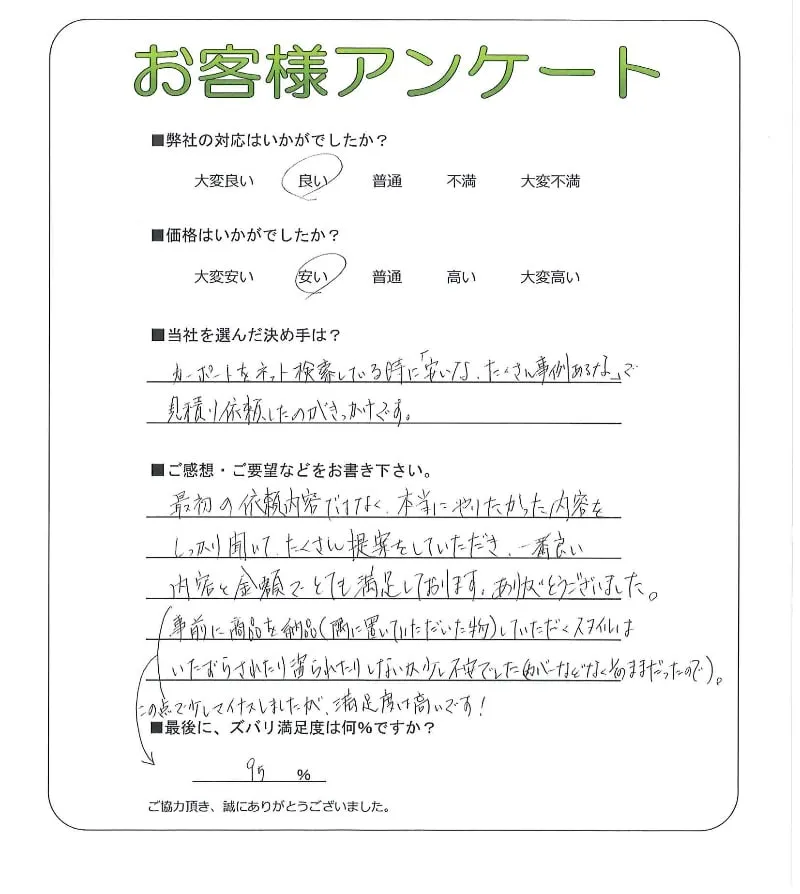 お客様アンケート
■弊社の対応はいかがでしたか？
大変良い 良い 普通 不満 大変不満
■価格はいかがでしたか？
大変安い 安い 普通 高い 大変高い
■当社を選んだ決め手は？
カーポートをネット検索している時に「安いな、たくさん事例あるな」で
見積り依頼したのがきっかけです。
■ご感想・ご要望などをお書き下さい。
最初の依頼内容だけでなく、本当にやりたかった内容を
しっかり聞いて、たくさん提案をしていただき、一番良い
内容と金額でとても満足しております。ありがとうございました。
事前に商品を納品(隅に置いていただいた物)していただくスタイルは
いたずらされたり されたりしないか少し不安でした(カバーなどなくそのままだったので)。
この点で少しマイナスしましたが、満足度は高いです！
■最後に、ズバリ満足度は何%ですか？
95 %
ご協力頂き、誠にありがとうございました。